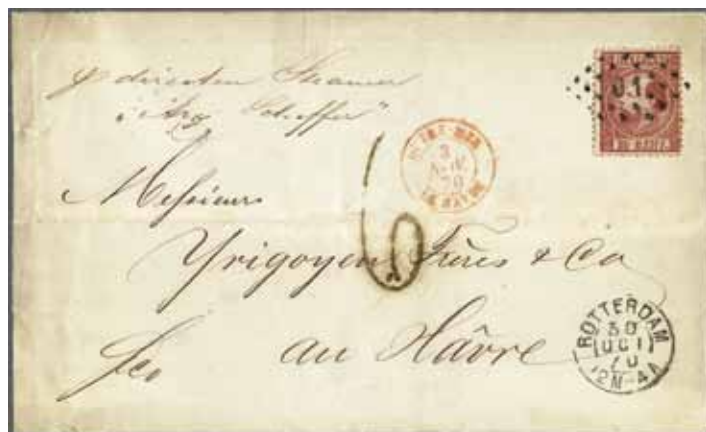 pr directen Steamer
"Ary Scheffer"
91
OUTRE-MER
3
NOV
70
LE HAVRE
Messieurs
Yrigoyen Frères & Co
fco au Hâvre
6
ROTTERDAM
30
OCT
70
12M-4A